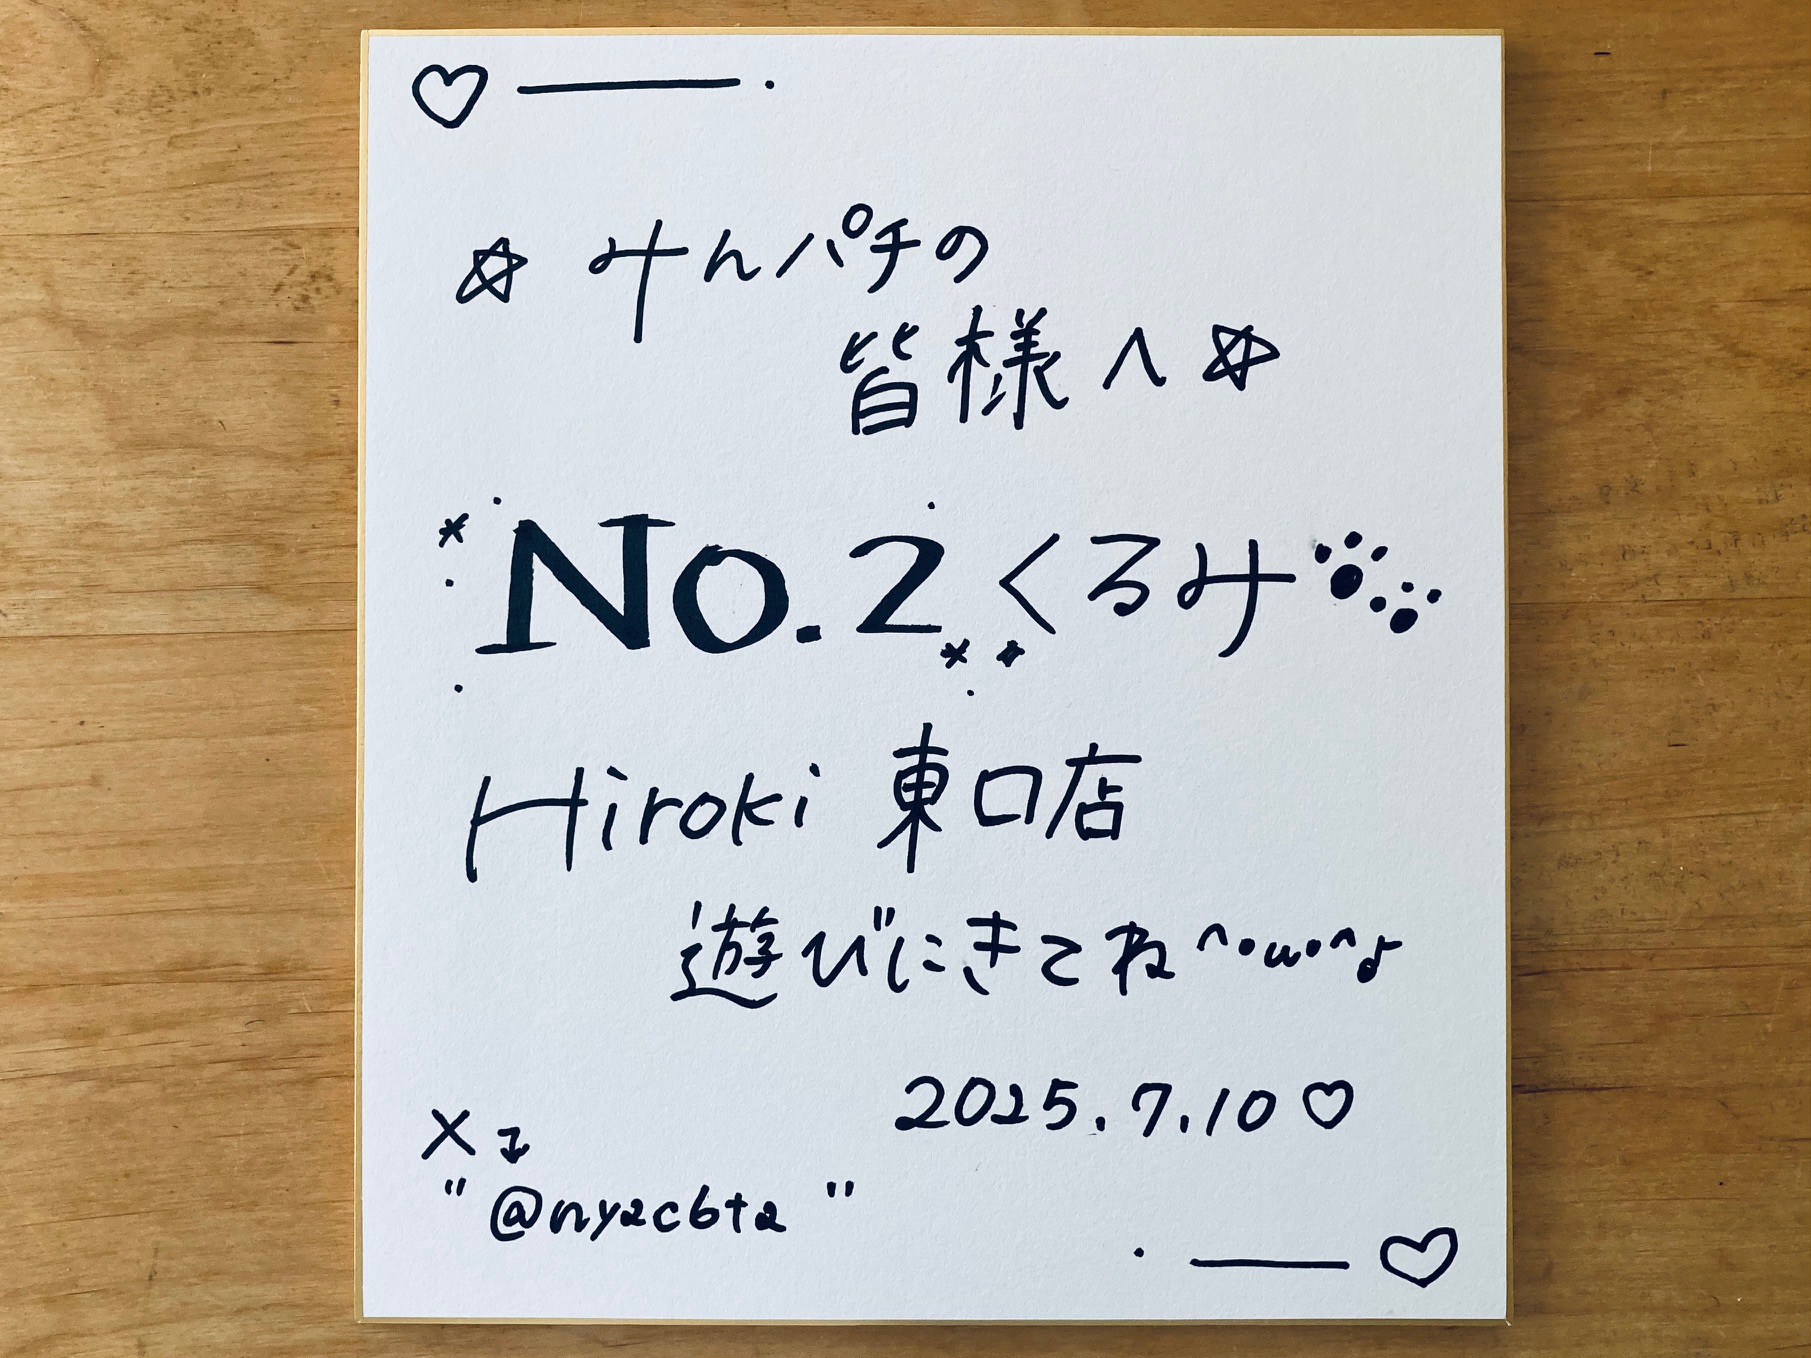 ♡ ―――・
☆ みんパチの
皆様へ☆
No.2 くるみ
Hiroki 東口店
遊びにきてね^・ω・^♪
2025.7.10♡
X↓
"@nyacbta"
・―― ♡